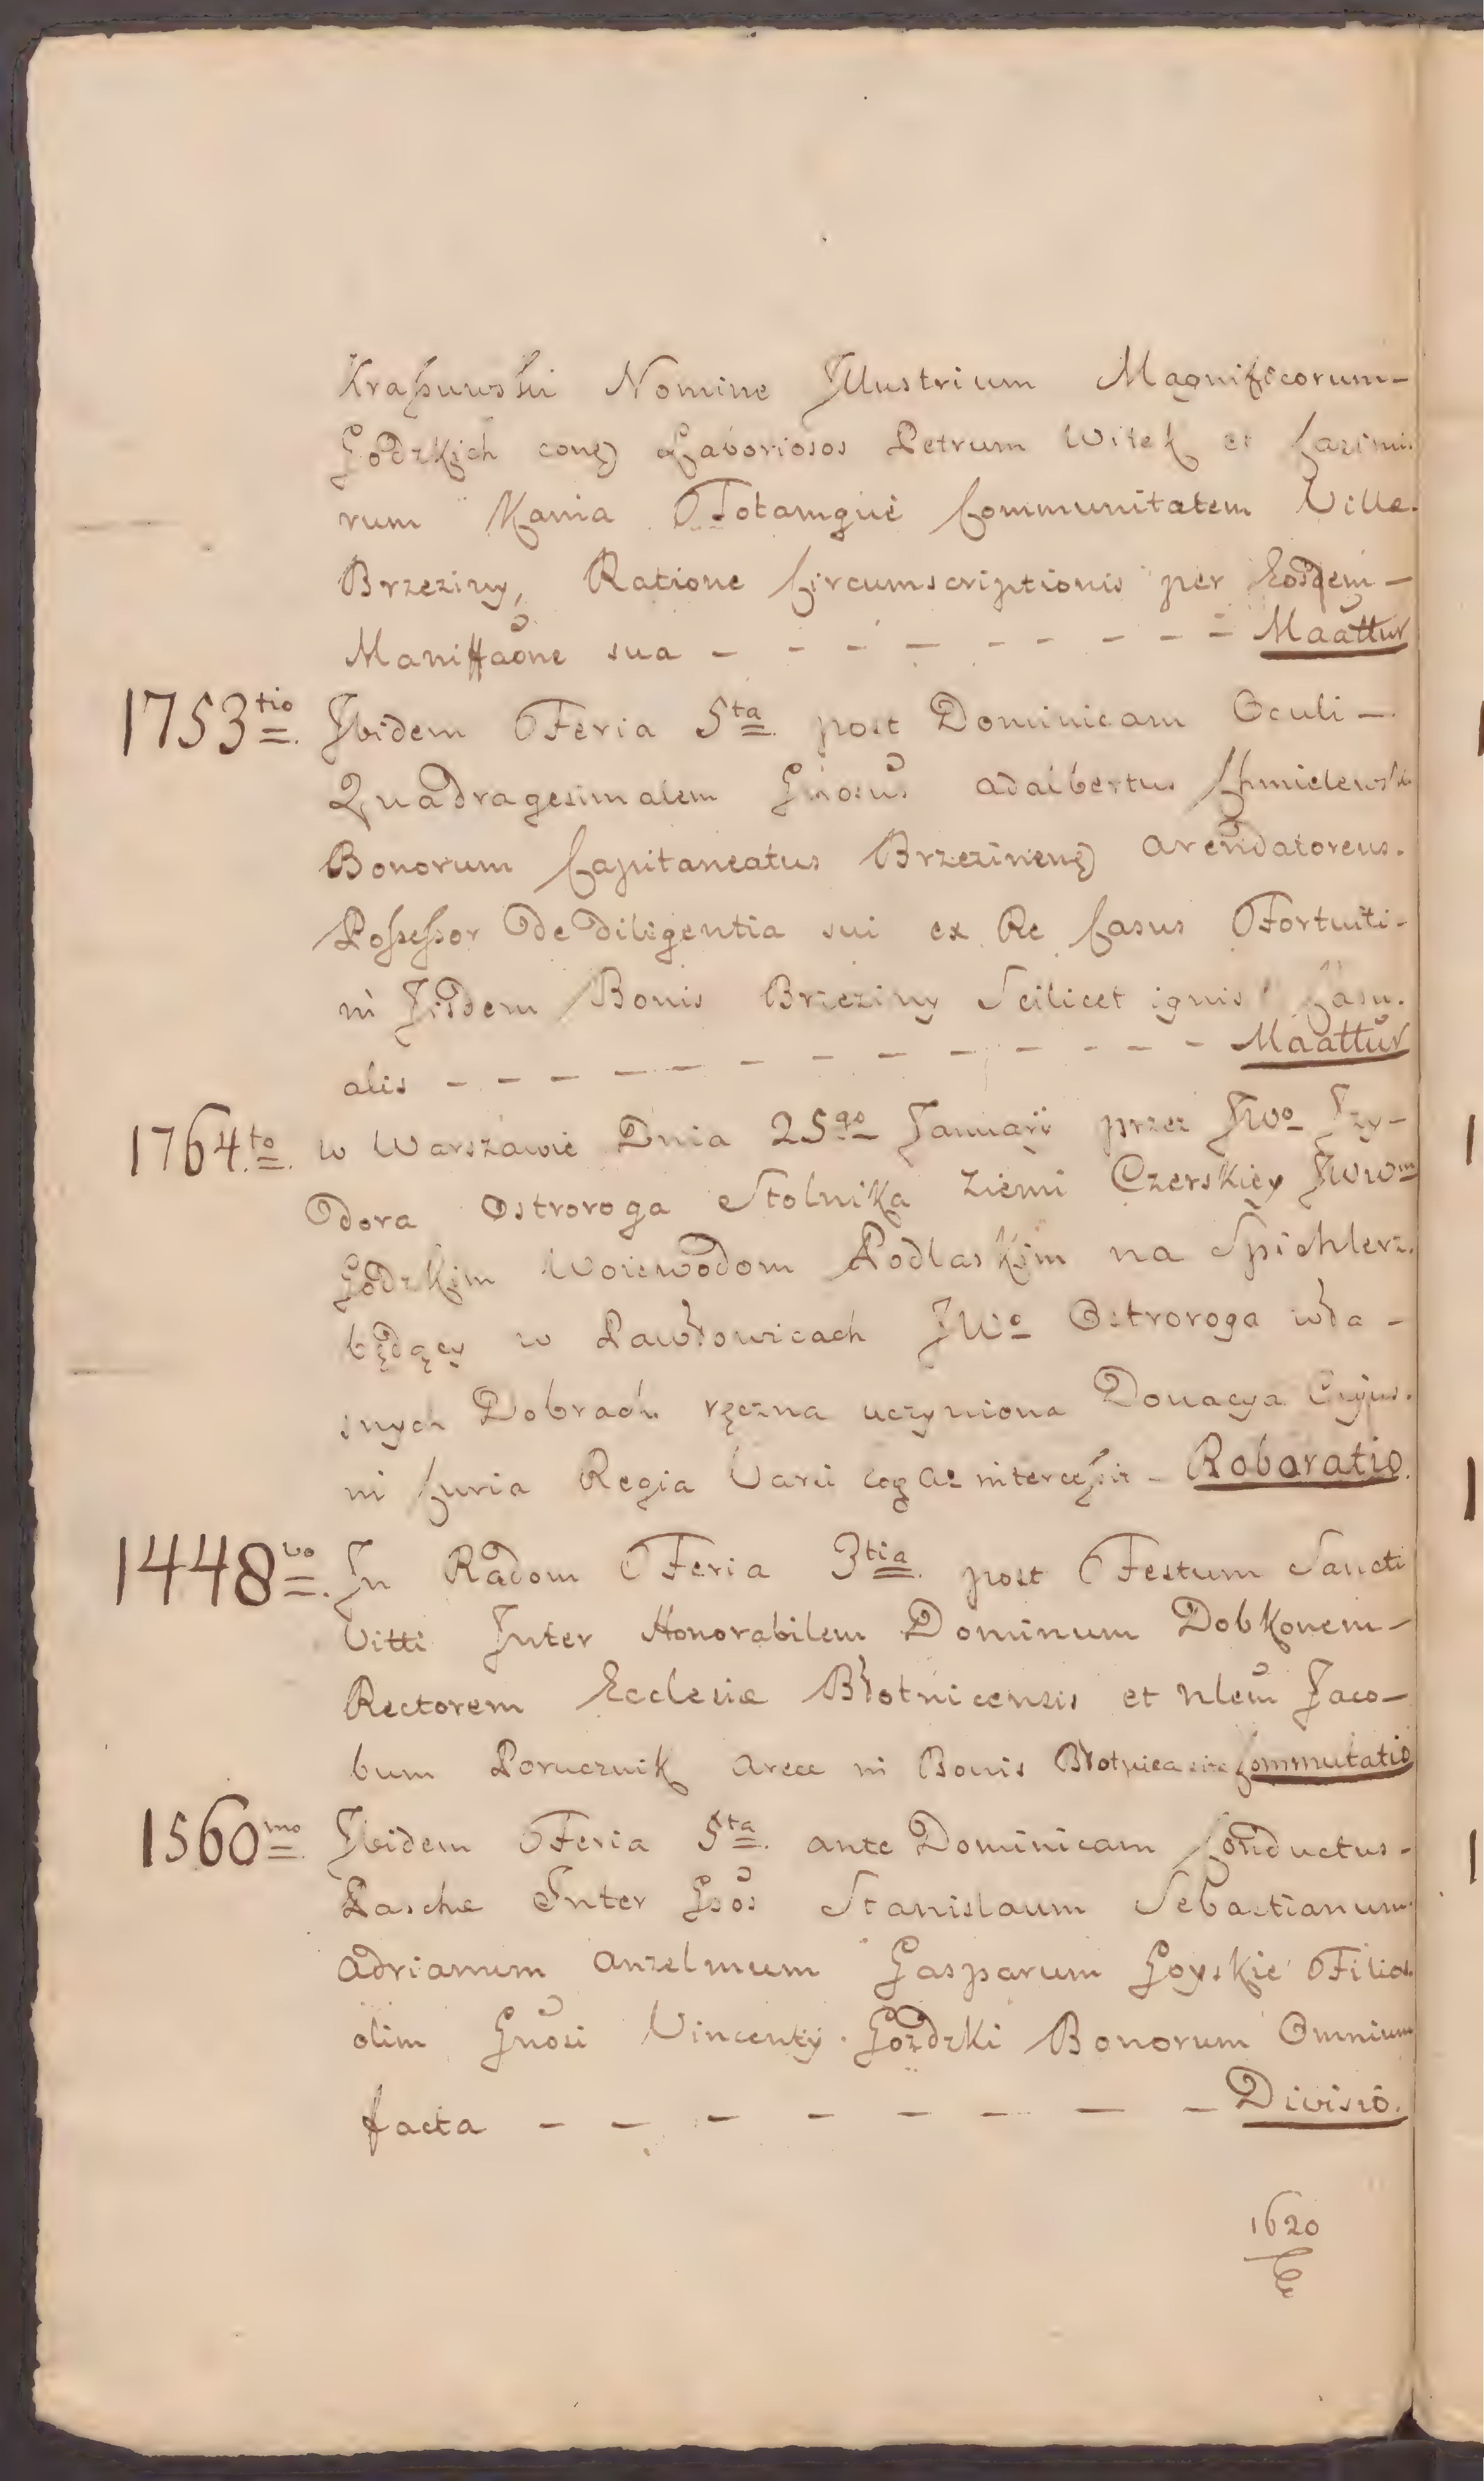 Kraßuwski Nomine Jllustrium Magnificorum-
Godzkich contra Laboriosos Petrum Witek et Casimi-
rum Kania Totamque Communitatem Villæ
Brzeziny, Ratione Circumscriptionis per Eosdem-
Maniffaõne sua - - - - - - - - Maãttur
1753tio Jbidem Feria 5ta post Dominicam Oculi-
Quadragesimalem Gnosus Adalbertus Chmielewski
Bonorum Capitaneatus Brzezinen Arendatoreus.
Poßeßor De Diligentia sui ex Re Casus Fortuiti-
in Jisdem Bonis Brzeziny Scilicet ignis Casu-
alis - - - - - - - - - - Maãttur
1764to w Warszawie Dnia 25go Januarij przez JWo Jzy-
dora Ostroroga Stolnika Ziemi Czerskiey JWWm
Godzkim Woiewodom Podlaskim na Spichlerz
będący w Pawłowicach JWo Ostroroga wła-
snych Dobrach ręczna uczyniona Donacya Cujus-
in Curia Regia Varii interceßit - Robaratio.
1448vo Jn Radom Feria 3tia post Festum Sancti
Vitti Jnter Honorabilem Dominum Dobkonem-
Rectorem Ecclesiæ Błotnicensis et Nlem Jaco-
bum Porucznik Areæ in Bonis Błotnica sitæ Commutatio
1560mo Jbidem Feria 5ta ante Dominicam Conductus-
Paschæ Jnter Gsos Stanislaum Sebastianum
Adrianum Anzelmum Gasparum Goyskie Filios
olim Gnosi Vincenty Gozdzki Bonorum Omnium
facta - - - - - - - - Divisio.
1620